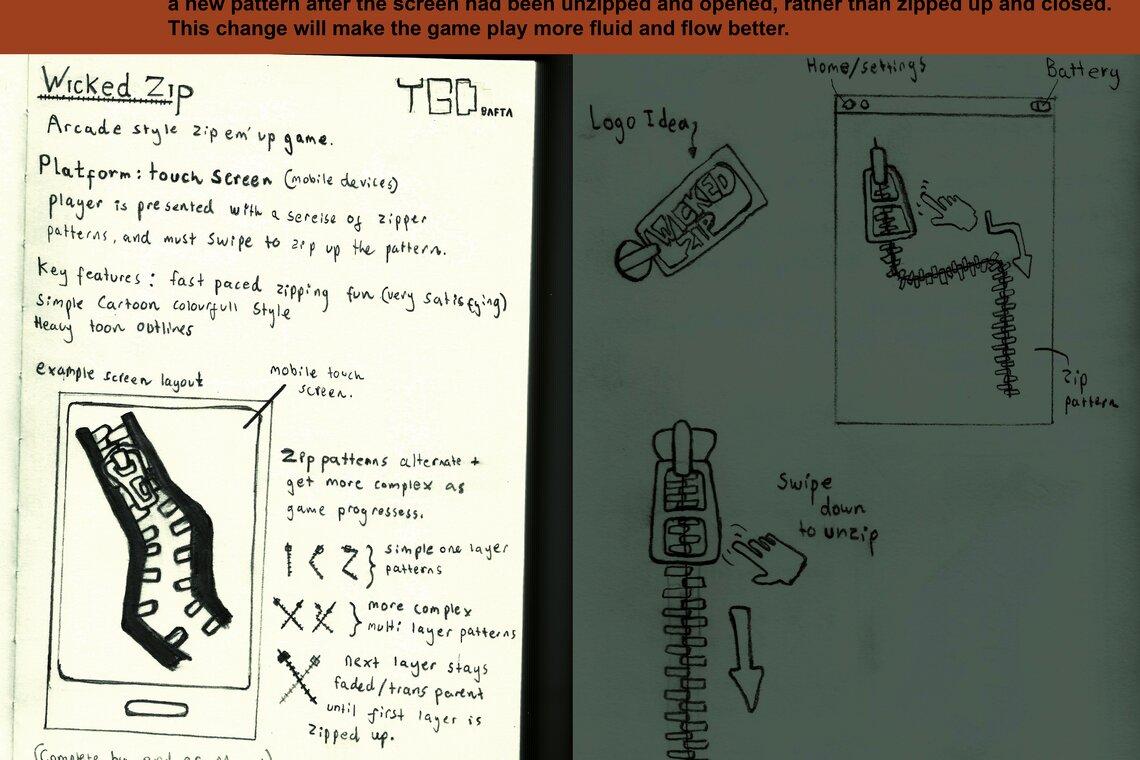 a new pattern after the screen had been unzipped and opened, rather than zipped up and closed.
This change will make the game play more fluid and flow better.
Wicked Zip
YGD BAFTA
Arcade style zip em' up game.
Platform: touch screen (mobile devices)
player is presented with a sereise of zipper
patterns, and must swipe to zip up the pattern.
Key features: fast paced zipping fun (very satisfying)
Simple Cartoon colourfull style
Heavy toon outlines
example screen layout
mobile touch
screen.
Zip patterns alternate +
get more complex as
game progressess.
simple one layer
patterns
more complex
multi layer patterns
next layer stays
faded/trans parent
until first layer is
zipped up.
Logo Idea
WICKED
ZIP
Home/settings
Battery
Zip
pattern
Swipe
down
to unzip